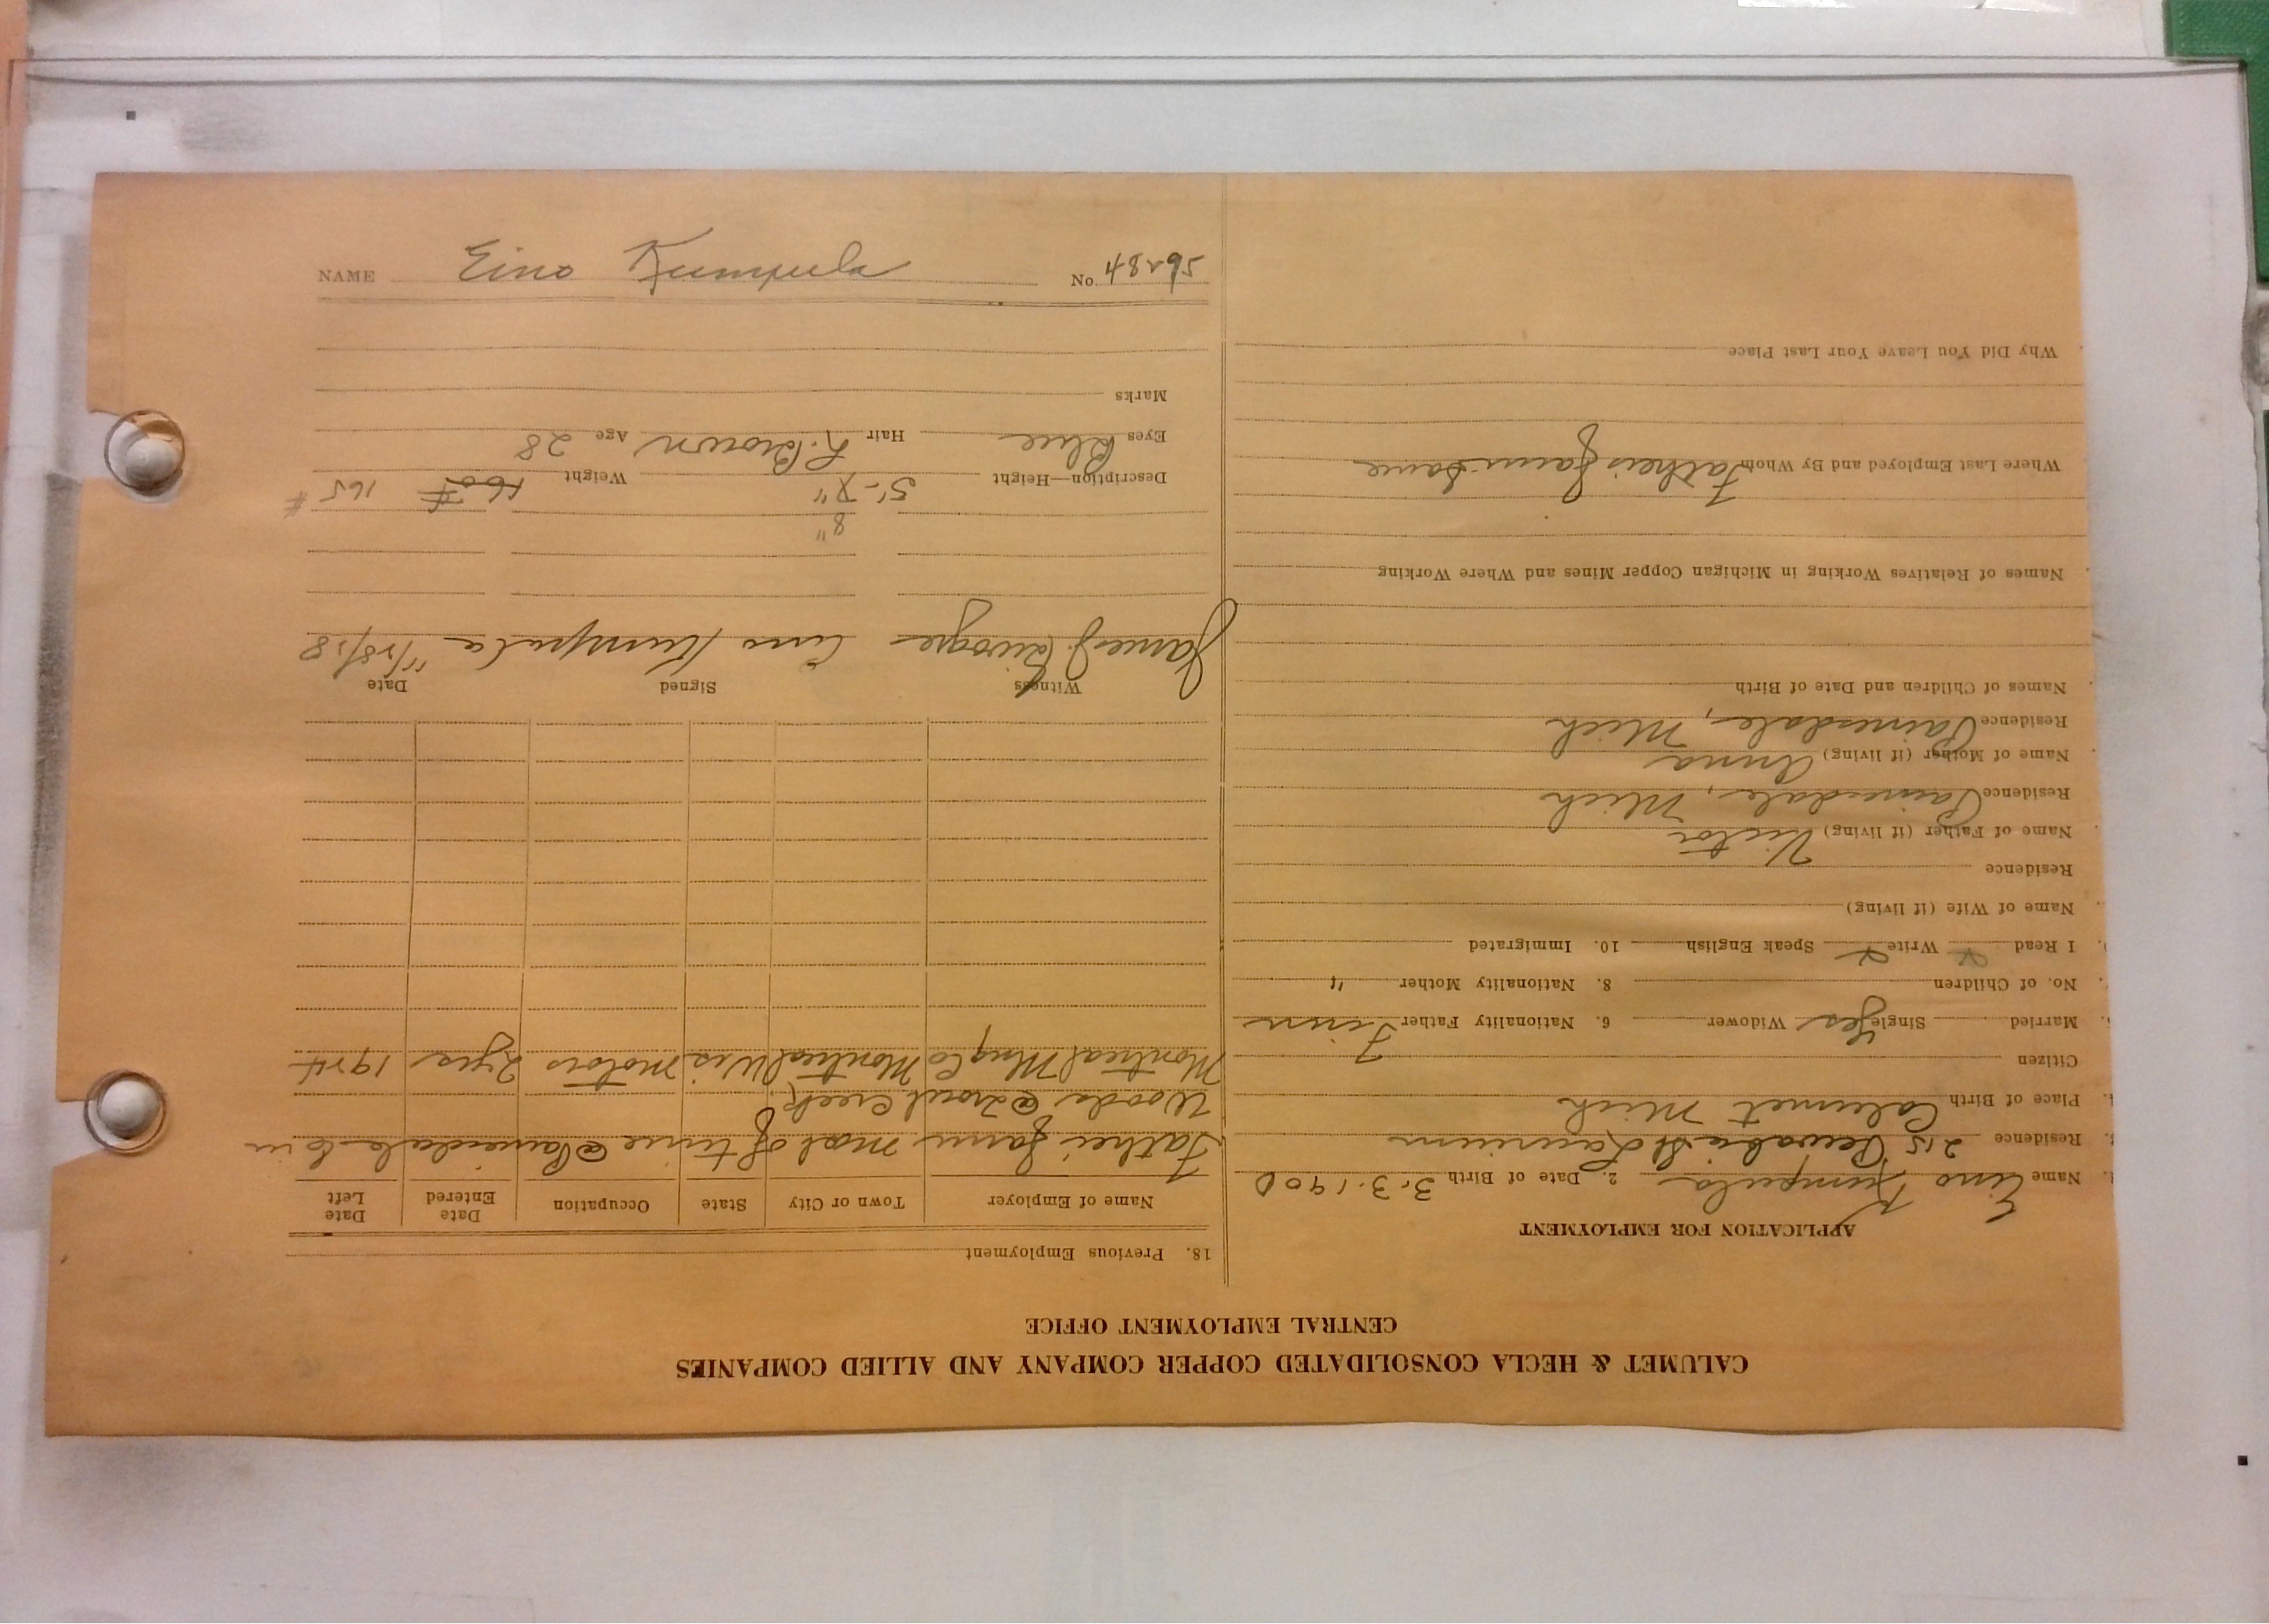 CALUMET & HECLA CONSOLIDATED COPPER COMPANY AND ALLIED COMPANIES
CENTRAL EMPLOYMENT OFFICE
APPLICATION FOR EMPLOYMENT
Name Eino Kumpula 2. Date of Birth 3.3.1900
Residence 215 Pewabic St Laurium
Place of Birth Calumet Mich
Citizen
Married Single Yes Widower 6. Nationality Father Finn
No. of Children 8. Nationality Mother "
I Read x Write x Speak English 10. Immigrated
Name of Wife (if living)
Residence
Name of Father (if living) Victor
Residence Painesdale, Mich
Name of Mother (if living) Anna
Residence Painesdale, Mich
Names of Children and Date of Birth
Names of Relatives Working in Michigan Copper Mines and Where Working
Where Last Employed and By Whom Fathers farm
Why Did You Leave Your Last Place
18. Previous Employment
Name of Employer Town or City State Occupation Date Entered Date Left
Father farm most of time @ Painesdale
Woods @ Trout Creek
Montreal Mng Co Montreal Wis motors 2 yrs 1924
Witness Signed Date
James Eino Kumpula 11/28/28
8"
Description—Height 5'-7" Weight 160# 165#
Eyes Blue Hair L. Brown Age 28
Marks
NAME Eino Kumpula No. 48295